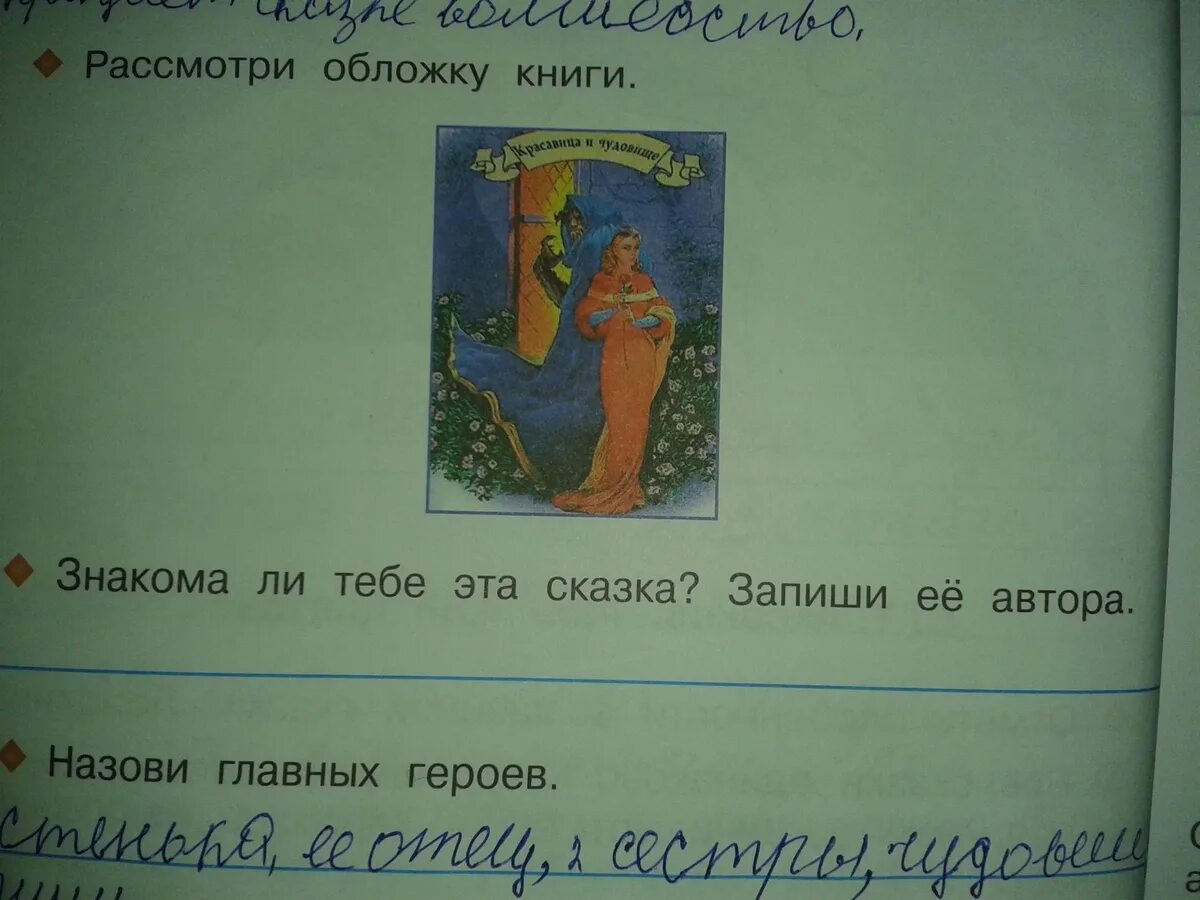 сказке волшебство.
Рассмотри обложку книги.
Красавица и чудовище
Знакома ли тебе эта сказка? Запиши её автора.
Назови главных героев.
стенька, ее отец, 2 сестры, чудовищ